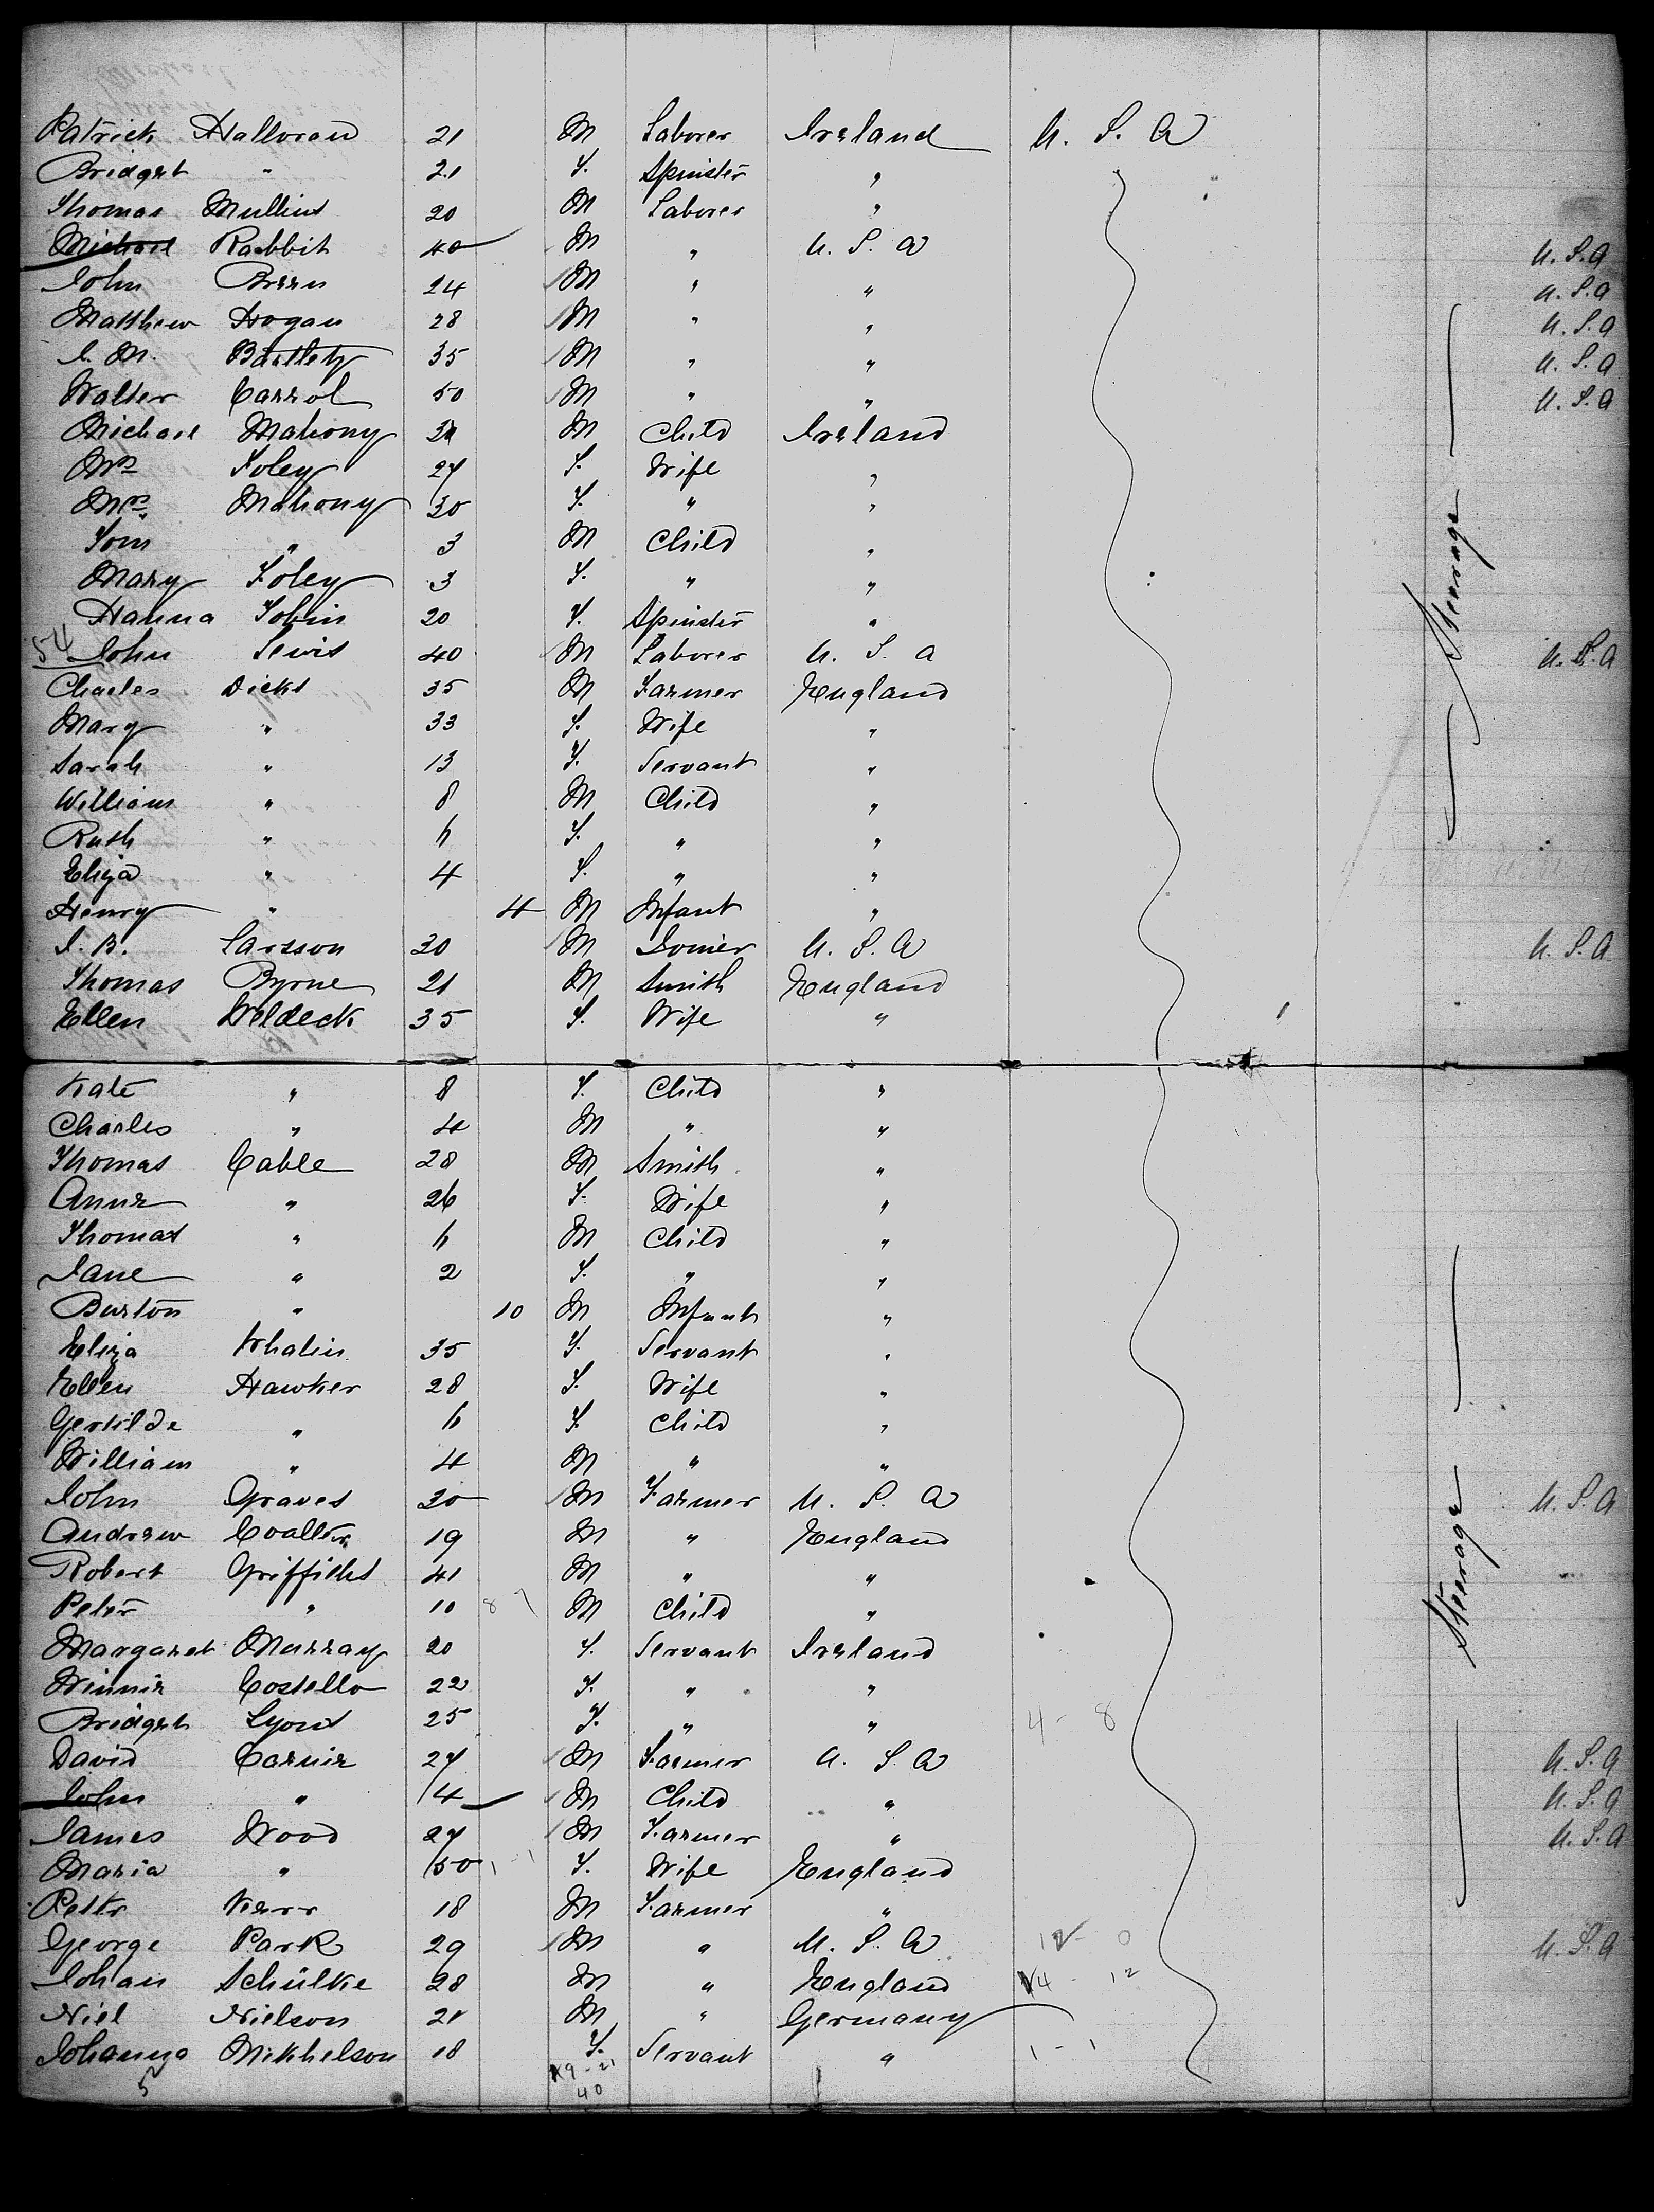 Patrick Halloran 21 M Laborer Ireland U. S. A
Bridget " 21 F. Spinster "
Thomas Mullins 20 M Laborer "
Michael Rabbit 40 M " U. S. A U. S. A
John Breen 24 M " " U. S. A
Matthew Hogan 28 M " " U. S. A
J. M. Bartlett 35 M " " U. S. A
Walter Carrol 50 M " " U. S. A
Michael Mahony M Child Ireland
Mrs Foley 27 F. Wife "
Mrs. Mahony 30 F. " "
Tom " 3 M Child "
Mary Foley 3 F. " "
Hanna Tobin 20 F. Spinster "
54 John Lewis 40 M Laborer U. S. A U. S. A
Charles Dicks 35 M Farmer England
Mary " 33 F. Wife "
Sarah " 13 F. Servant "
William " 8 M Child "
Ruth " 6 F. " "
Eliza " 4 F. " "
Henry " 4 M Infant "
J. B. Larsson 30 M Joiner U. S. A U. S. A
Thomas Byrne 21 M Smith England
Ellen Weldeck 35 F. Wife "
Steerage
Kate " 8 F. Child "
Charles " 4 M " "
Thomas Cable 28 M Smith "
Anne " 26 F. Wife "
Thomas " 6 M Child "
Jane " 2 F. " "
Burton " 10 M Infant "
Eliza Whalin 35 F. Servant "
Ellen Hawker 28 F. Wife "
Gertilde " 6 F. Child "
William " 4 M " "
John Graves 30 M Farmer U. S. A U. S. A
Andrew Coalter 19 M " England
Robert Griffiths 41 M " "
Peter " 10 8 7 M Child "
Margaret Murray 20 F. Servant Ireland
Winnie Costello 22 F. " "
Bridget Lyons 25 F. " " 4 - 8
David Carnie 27 M Farmer U. S. A U. S. A
John " 4 M Child " U. S. A
James Wood 27 M Farmer " U. S. A
Maria " 50 1 - 1 F. Wife England
Peter Kerr 18 M Farmer "
George Park 29 M " U. S. A 12 - 0 U. S. A
Johan Schülke 28 M " England 14 - 12
Niel Nielson 21 M " Germany
Johanna Mikhelson 18 F. Servant " 1 - 1
Steerage
5 19 - 21
40